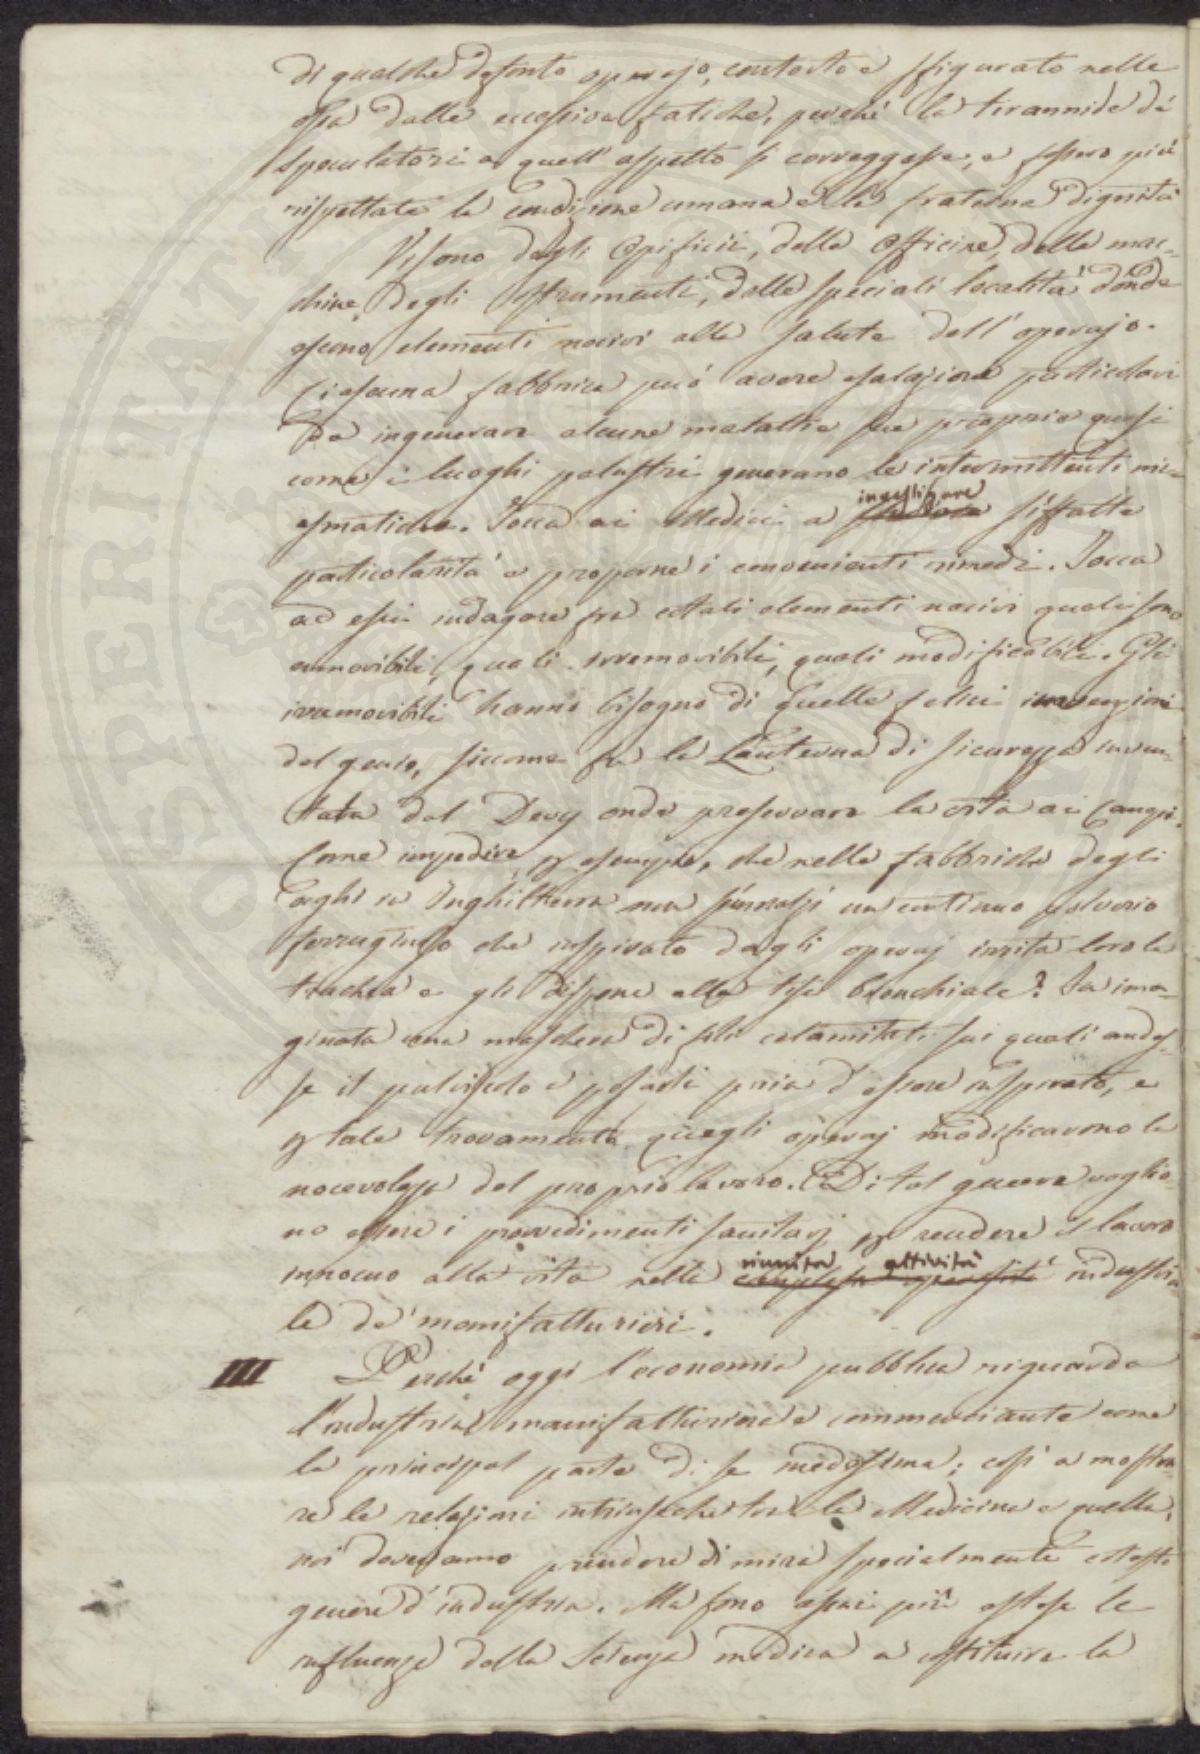 di qualche defonto operajo, contorto e sfigurato nelle
ossa dalle eccessive fatiche, perchè la tirannide de'
speculatori a quell'aspetto si correggesse, e fossero più
rispettate la condizione umana e la fraterna dignità
Vi sono degli Opificii, delle Officine, delle mac-
chine, degli strumenti, delle speciali località donde
escono elementi nocivi alla salute dell'operajo.
Ciascuna fabbrica può avere esalazioni particolari
da ingenerare alcune malattie sue proprie quasi
come i luoghi palustri generano le intermittenti mi-
asmatiche. Tocca ai Medici a investigare siffatte
particolarità e proporne i convenienti rimedi. Tocca
ad essi indagare fra cotali elementi nocivi quali sono
ammovibili, quali irremovibili, quali modificabili. Gli
irremovibili hanno bisogno di quelle felici invenzioni
del genio, siccome fu la Lanterna di sicurezza inven-
tata dal Davy onde preservare la vita ai
Come impedire p esempio, che nelle fabbriche degli
aghi in Inghilterra non s'innalzi un continuo polverio
ferruginoso che inspirato dagli operaj irrita loro la
trachea e gli dispone alla tise bronchiale? Fu ima-
ginata una maschera di fili calamitati sui quali andas-
se il pulviscolo a posarsi pria d'essere inspirato, e
p tale trovamento quegli operaj modificarono la
nocevolezza del proprio lavoro. Di tal genere voglio-
no essere i provvedimenti sanitarj p rendere il lavoro
innocuo alla vita nella riunita attività industria-
le de' manifatturieri.
III Perchè oggi l'economia pubblica riguarda
l'industria manifatturiera e commerciante come
la principal parte di se medesima; così a mostra-
re le relazioni intrinseche tra la Medicina e quella,
noi dovessimo prendere di mira specialmente cotesto
genere d'industria. Ma sono assai più estese le
influenze della Scienza medica a costituire la